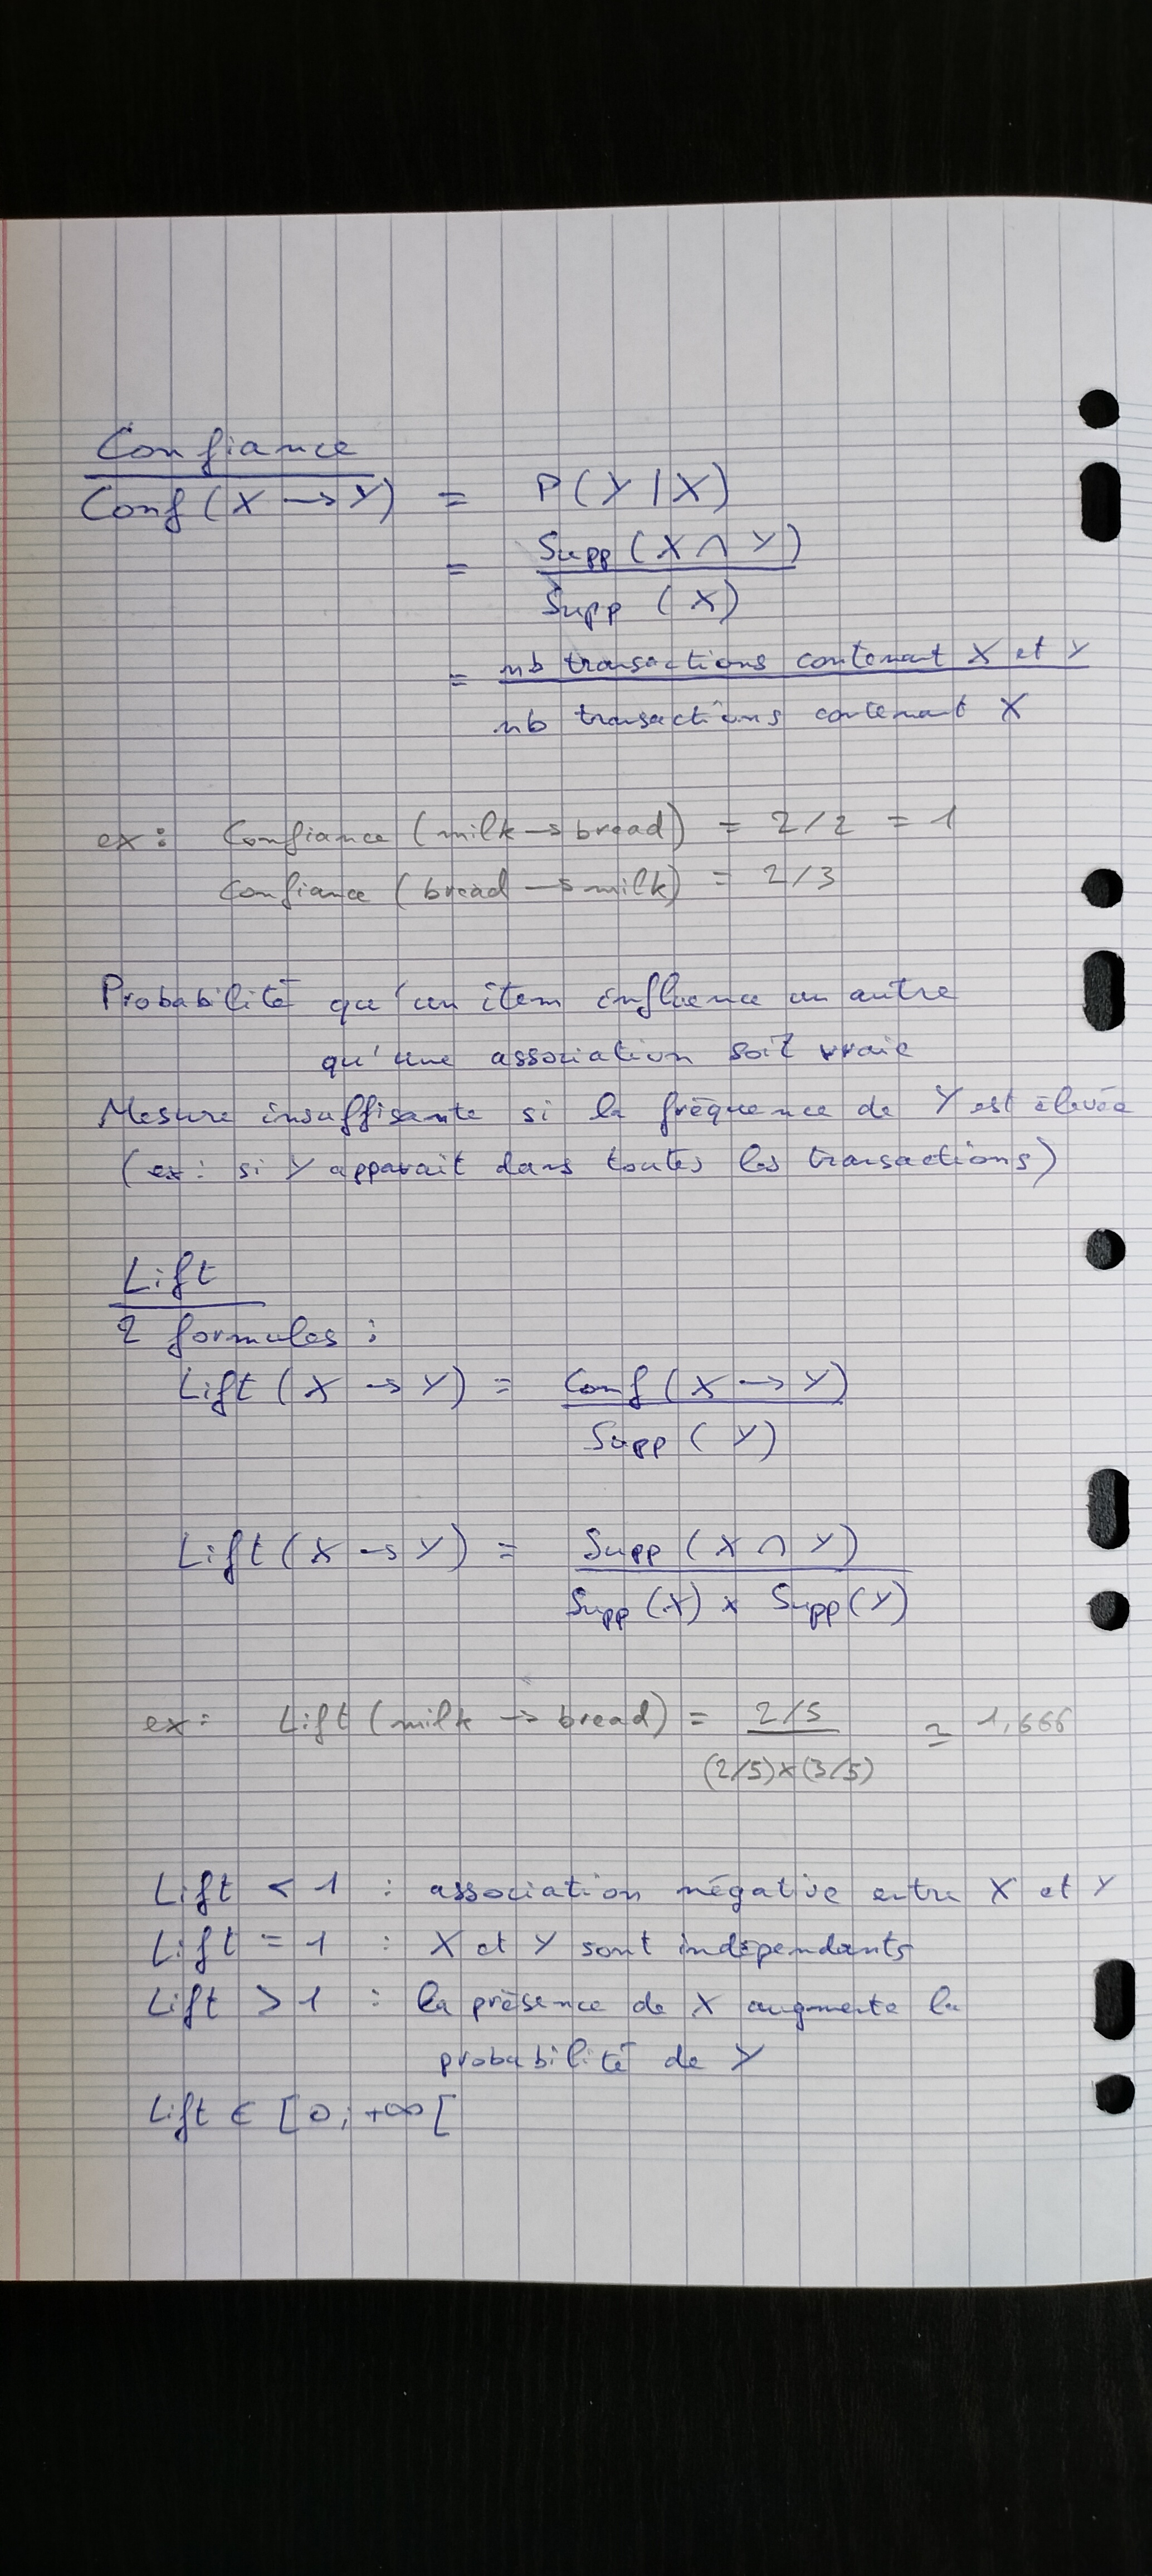 Confiance
Conf (X → Y) = P(Y | X)
= Supp (X ∩ Y)
Supp (X)
= nb transactions contenant X et Y
nb transactions contenant X
ex: Confiance (milk → bread) = 2/2 = 1
Confiance (bread → milk) = 2/3
Probabilité qu'un item influence un autre
qu'une association soit vraie
Mesure insuffisante si la fréquence de Y est élevée
(ex: si Y apparait dans toutes les transactions)
Lift
2 formules :
Lift (X → Y) = Conf (X → Y)
Supp (Y)
Lift (X → Y) = Supp (X ∩ Y)
Supp (X) x Supp (Y)
ex: Lift (milk → bread) = 2/5 ≃ 1,666
(2/5)x(3/5)
Lift < 1 : association négative entre X et Y
Lift = 1 : X et Y sont indépendants
Lift > 1 : la présence de X augmente la
probabilité de Y
Lift ∈ [0; +∞[